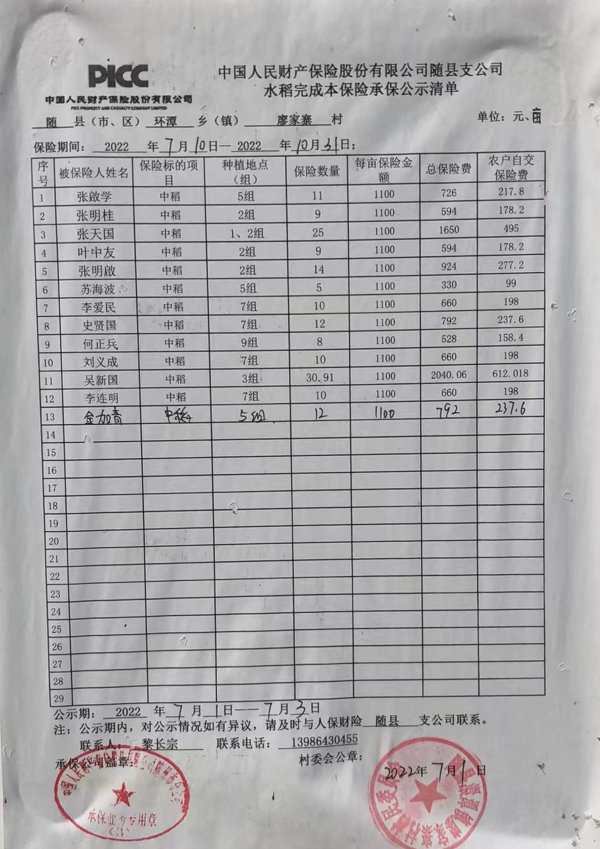 PICC
中国人民财产保险股份有限公司
PICC PROPERTY AND CASUALTY COMPANY LIMITED
中国人民财产保险股份有限公司随县支公司
水稻完成本保险承保公示清单
随 县（市、区） 环潭 乡（镇） 廖家寨 村 单位：元、亩
保险期间： 2022 年7月10日— 2022 年10月31日；
序号 被保险人姓名 保险标的项目 种植地点（组） 保险数量 每亩保险金额 总保险费 农户自交保险费
1 张啟学 中稻 5组 11 1100 726 217.8
2 张明桂 中稻 2组 9 1100 594 178.2
3 张天国 中稻 1、2组 25 1100 1650 495
4 叶中友 中稻 2组 9 1100 594 178.2
5 张明啟 中稻 2组 14 1100 924 277.2
6 苏海波 中稻 5组 5 1100 330 99
7 李爱民 中稻 7组 10 1100 660 198
8 史贤国 中稻 7组 12 1100 792 237.6
9 何正兵 中稻 9组 8 1100 528 158.4
10 刘义成 中稻 7组 10 1100 660 198
11 吴新国 中稻 3组 30.91 1100 2040.06 612.018
12 李连明 中稻 7组 10 1100 660 198
13 金加青 中稻 5组 12 1100 792 237.6
14
15
16
17
18
19
20
21
22
23
24
25
26
27
28
29
公示期： 2022 年7月1日——7月3日
注：公示期内，对公示情况如有异议，请及时与人保财险 随县 支公司联系。
联系人： 黎长宗 联系电话： 13986430455
承保公司盖章： 村委会公章：
2022年7月1日
承保业务专用章